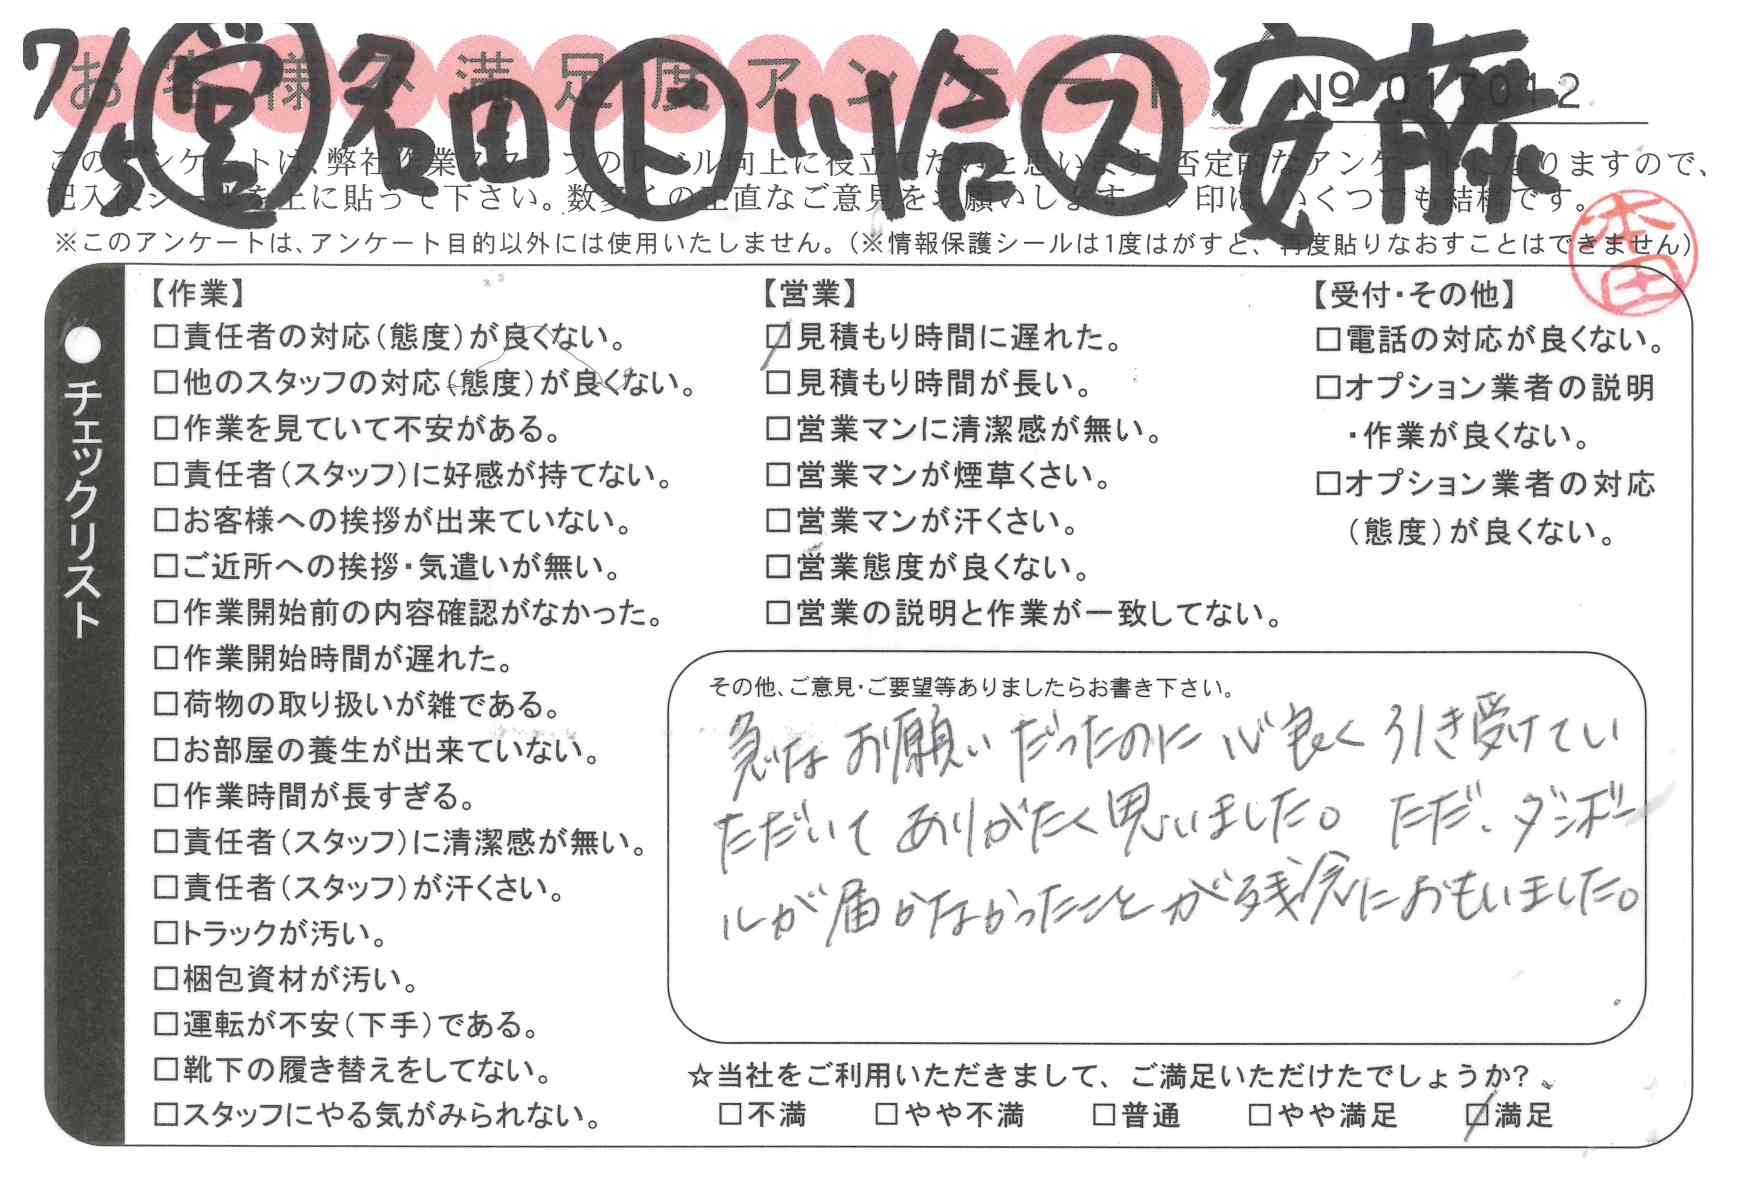 7/5 営 名田 ト 川合 ス 安藤
お客様不満足度アンケート
No 017012
このアンケートは、弊社作業スタッフのレベル向上に役立てたいと思います。否定的なアンケートになりますので、
記入後シールを上に貼って下さい。数多くの正直なご意見をお願いします。レ印は、いくつでも結構です。
本田
※このアンケートは、アンケート目的以外には使用いたしません。（※情報保護シールは1度はがすと、再度貼りなおすことはできません）
●チェックリスト
【作業】
□責任者の対応（態度）が良くない。
□他のスタッフの対応（態度）が良くない。
□作業を見ていて不安がある。
□責任者（スタッフ）に好感が持てない。
□お客様への挨拶が出来ていない。
□ご近所への挨拶・気遣いが無い。
□作業開始前の内容確認がなかった。
□作業開始時間が遅れた。
□荷物の取り扱いが雑である。
□お部屋の養生が出来ていない。
□作業時間が長すぎる。
□責任者（スタッフ）に清潔感が無い。
□責任者（スタッフ）が汗くさい。
□トラックが汚い。
□梱包資材が汚い。
□運転が不安（下手）である。
□靴下の履き替えをしてない。
□スタッフにやる気がみられない。
【営業】
□見積もり時間に遅れた。
□見積もり時間が長い。
□営業マンに清潔感が無い。
□営業マンが煙草くさい。
□営業マンが汗くさい。
□営業態度が良くない。
□営業の説明と作業が一致してない。
【受付・その他】
□電話の対応が良くない。
□オプション業者の説明
・作業が良くない。
□オプション業者の対応
（態度）が良くない。
その他、ご意見・ご要望等ありましたらお書き下さい。
急なお願いだったのに心良く引き受けてい
ただいてありがたく思いました。ただ、ダンボー
ルが届かなかったことが残念におもいました。
☆当社をご利用いただきまして、ご満足いただけたでしょうか？
□不満 □やや不満 □普通 □やや満足 □満足